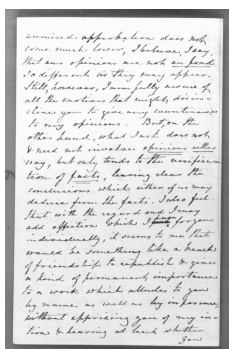 unmixed approbation does not
come much lower, I believe, I say
that our opinions are not au fond
so different as they may appear.
Still, however, I am fully aware of
all the motives that might disin-
cline you to give any countenance
to my opinions. But, on the
other hand, what I ask does not,
& need not involve opinions either
way, but only tends to the verifica-
tion of facts, leaving clear the
conclusions which either of us may
deduce from the facts. I also feel
that with the regard and I may
add affection which I for you
individually, it seems to me that
would be something like a breach
of friendship to republish & give
a kind of permanent importance
to a work which alludes to you
by name, as well as by inference,
without apprising you of my in-
tention & hearing at least whether
you